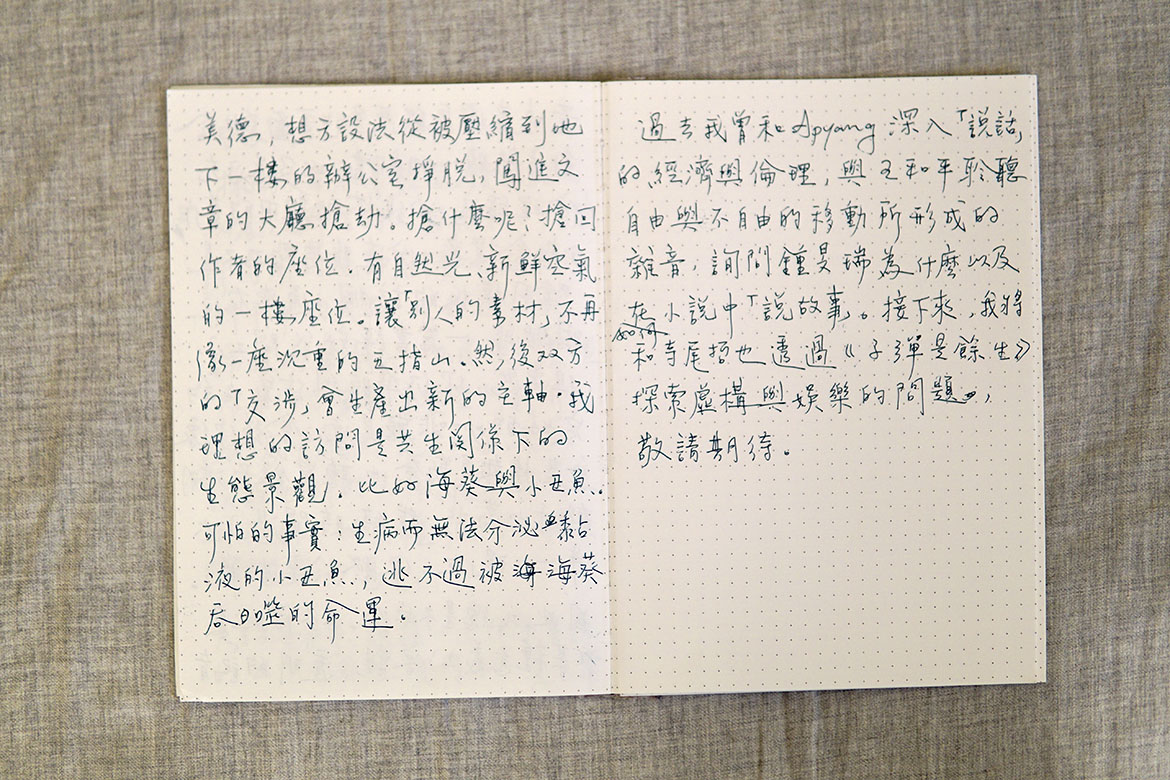 美德，想方設法從被壓縮到地
下一樓的辦公室掙脫，闖進文
章的大廳搶劫。搶什麼呢？搶回
作者的座位，有自然光、新鮮空氣
的一樓座位。讓「別人的素材」不再
像一座沉重的五指山、然後双方
的「交涉」會生產出新的主軸。我
理想的訪問是共生関係下的
生態景觀，比如海葵與小丑魚。
可怕的事實：生病而無法分泌黏
液的小丑魚，逃不過被海海葵
吞噬的命運。
過去我曾和Apyang深入「說話」
的經濟與倫理，與王和平聆聽
自由與不自由的移動所形成的
雜音，詢問鍾旻瑞為什麼以及
如何
在小說中「說故事」。接下來，我將
和寺尾哲也透過《子彈是餘生》
探索虛構與娛樂的問題，
敬請期待。